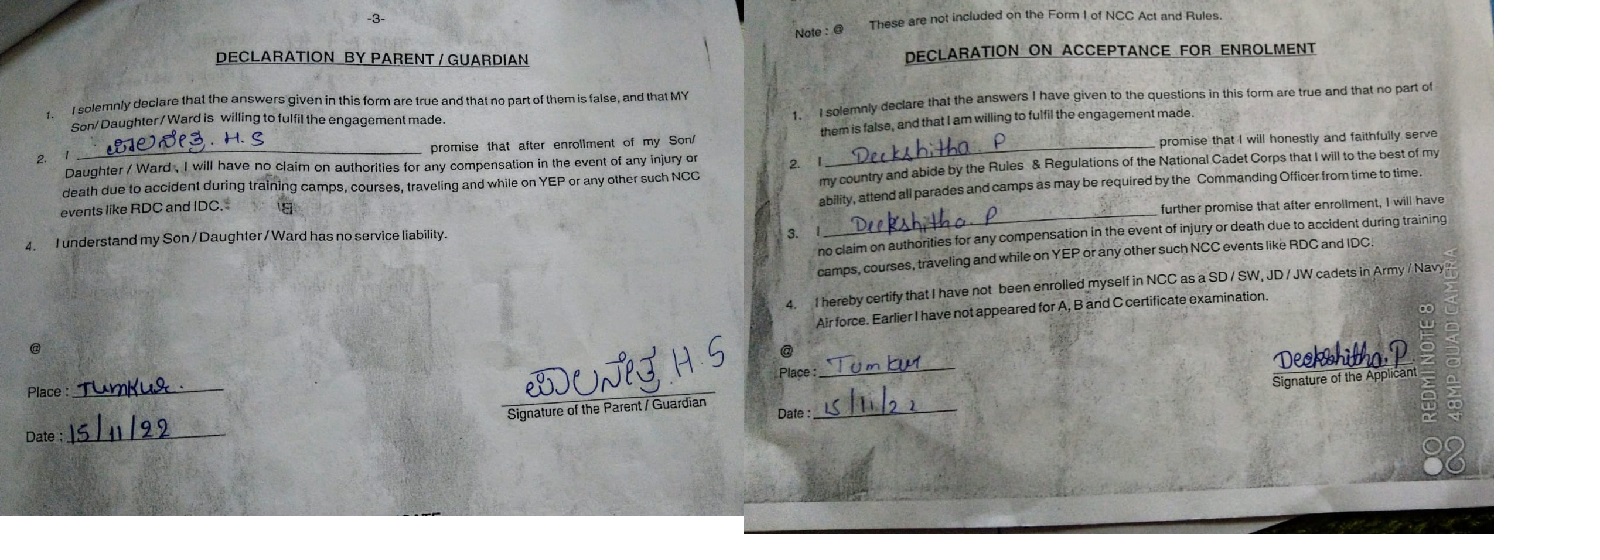 -3-
DECLARATION BY PARENT / GUARDIAN
1. I solemnly declare that the answers given in this form are true and that no part of them is false, and that MY
Son/ Daughter / Ward is willing to fulfil the engagement made.
2. I H.S promise that after enrollment of my Son/
Daughter / Ward, I will have no claim on authorities for any compensation in the event of any injury or
death due to accident during training camps, courses, traveling and while on YEP or any other such NCC
events like RDC and IDC.
4. I understand my Son / Daughter / Ward has no service liability.
@
Place : Tumkur.
Date : 15/11/22
H.S
Signature of the Parent / Guardian
Note : @ These are not included on the Form I of NCC Act and Rules.
DECLARATION ON ACCEPTANCE FOR ENROLMENT
1. I solemnly declare that the answers I have given to the questions in this form are true and that no part of
them is false, and that I am willing to fulfil the engagement made.
2. I Deekshitha P promise that I will honestly and faithfully serve
my country and abide by the Rules & Regulations of the National Cadet Corps that I will to the best of my
ability, attend all parades and camps as may be required by the Commanding Officer from time to time.
3. I Deekshitha P further promise that after enrollment, I will have
no claim on authorities for any compensation in the event of injury or death due to accident during training
camps, courses, traveling and while on YEP or any other such NCC events like RDC and IDC.
4. I hereby certify that I have not been enrolled myself in NCC as a SD / SW, JD / JW cadets in Army / Navy
Airforce. Earlier I have not appeared for A, B and C certificate examination.
@
Place : Tumkur
Date : 15/11/22
Deekshitha.P
Signature of the Applicant
REDMI NOTE 8
48MP QUAD CAMERA